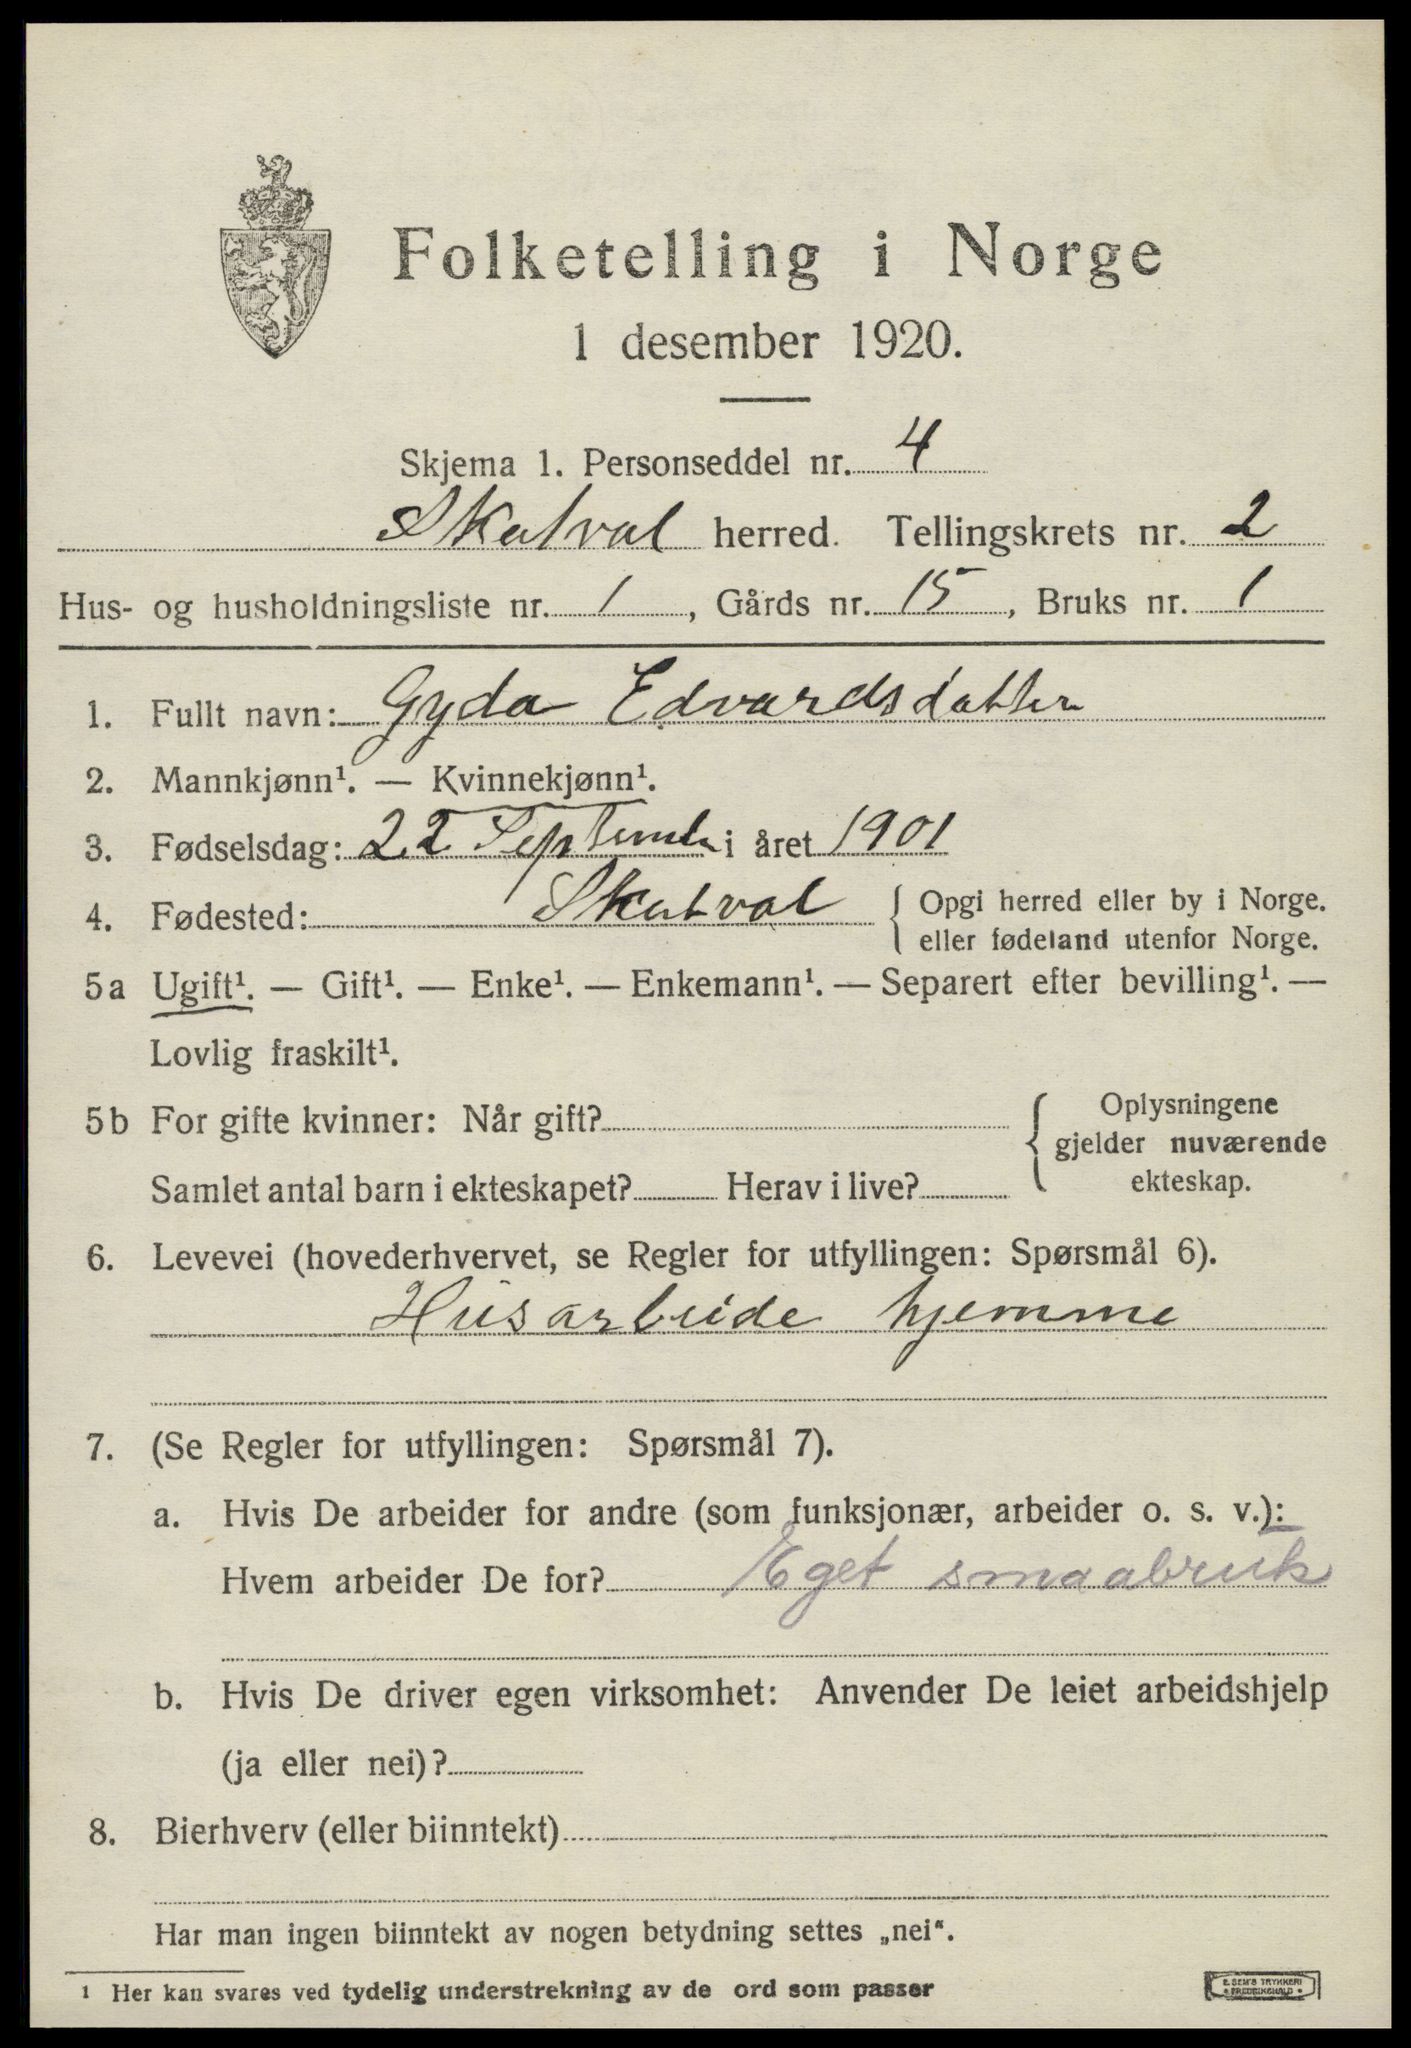 Folketelling i Norge
1 desember 1920.
Skjema 1. Personseddel nr. 4
Skatval herred. Tellingskrets nr. 2
Hus- og husholdningsliste nr. 1, Gårds nr. 15, Bruks nr. 1
1. Fullt navn: Gyda Edvardsdatter
2. Mannkjønn¹. — Kvinnekjønn¹.
3. Fødselsdag: 22 September i året 1901
4. Fødested: Skatval { Opgi herred eller by i Norge.
eller fødeland utenfor Norge.
5a Ugift¹. — Gift¹. — Enke¹. — Enkemann¹. — Separert efter bevilling¹. —
Lovlig fraskilt¹.
5b For gifte kvinner: Når gift? { Oplysningene
gjelder nuværende
Samlet antal barn i ekteskapet? Herav i live? ekteskap.
6. Levevei (hovederhvervet, se Regler for utfyllingen: Spørsmål 6).
Husarbeide hjemme
7. (Se Regler for utfyllingen: Spørsmål 7).
a. Hvis De arbeider for andre (som funksjonær, arbeider o. s. v.):
Hvem arbeider De for? Eget smaabruk
b. Hvis De driver egen virksomhet: Anvender De leiet arbeidshjelp
(ja eller nei)?
8. Bierhverv (eller biinntekt)
Har man ingen biinntekt av nogen betydning settes „nei“.
¹ Her kan svares ved tydelig understrekning av de ord som passer
E. SEM'S TRYKKERI
• FREDRIKSHALD •